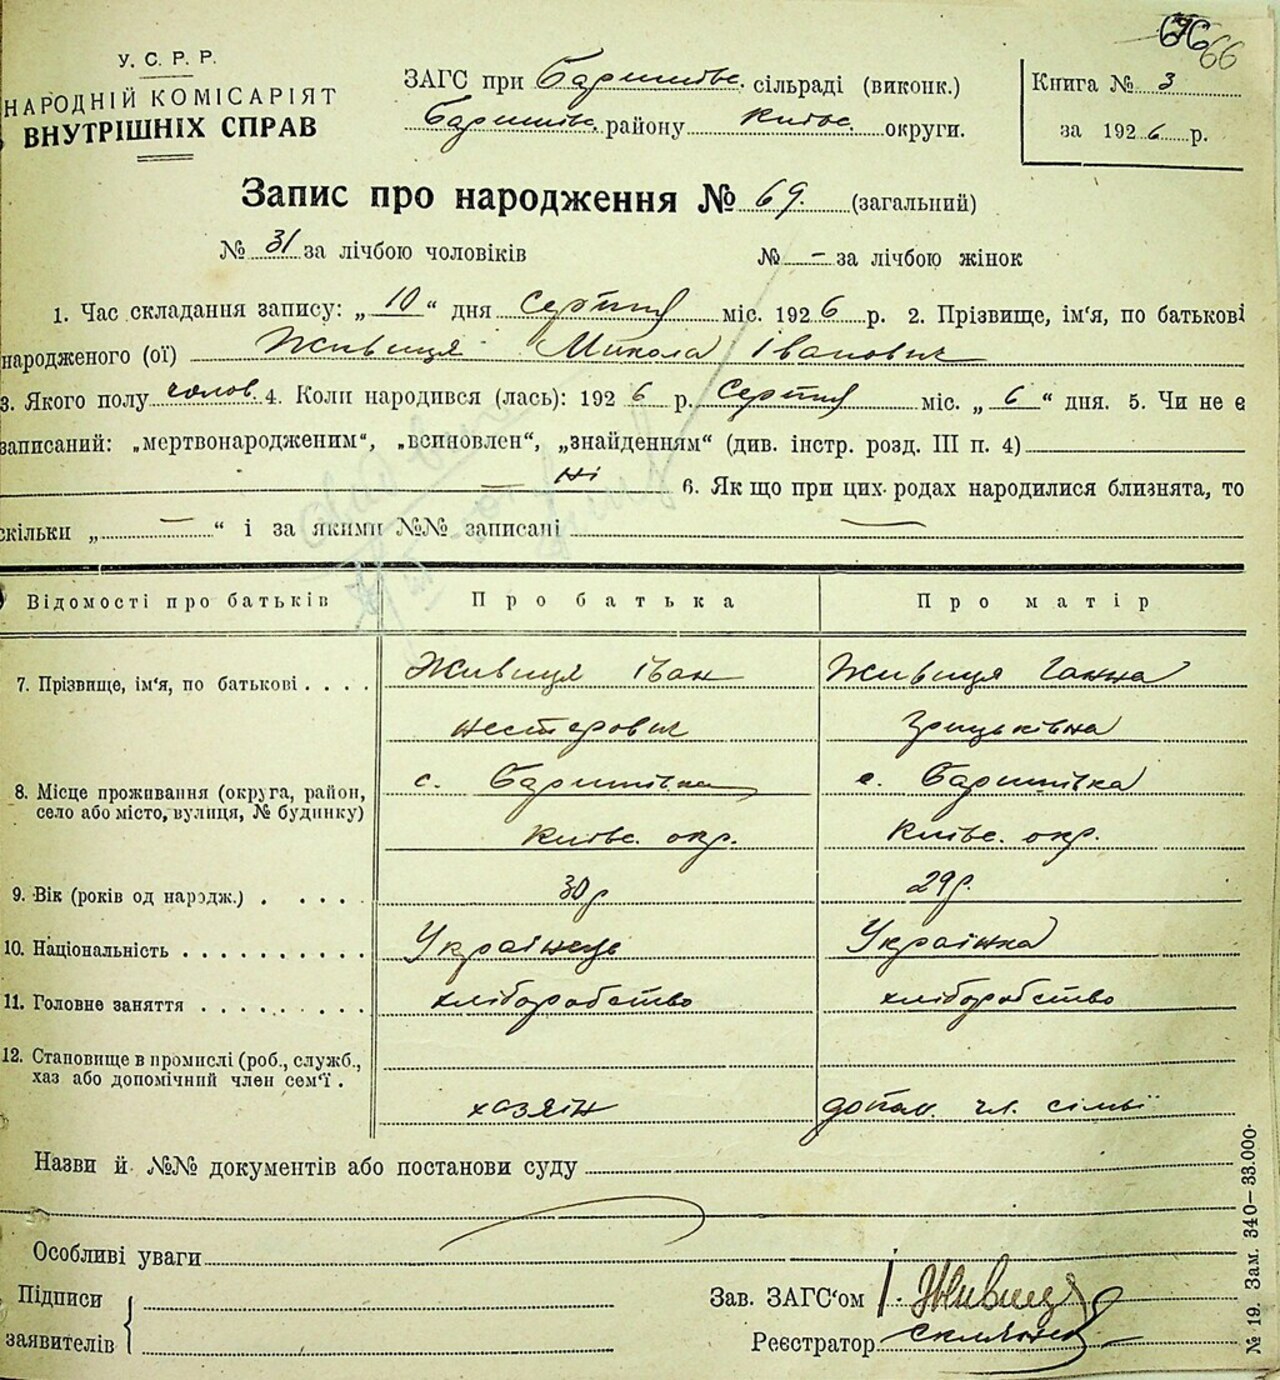 66
У. С. Р. Р.
НАРОДНІЙ КОМІСАРІЯТ
ВНУТРІШНІХ СПРАВ
ЗАГС при Баришівс. сільраді (виконк.)
Баришівс. району Київс. округи.
Книга № 3
за 1926 р.
Запис про народження № 69. (загальний)
№ 31 за лічбою чоловіків № – за лічбою жінок
1. Час складання запису: „10“ дня Серпня міс. 1926 р. 2. Прізвище, ім'я, по батькові
народженого (ої) Живиця Микола Іванович
3. Якого полу чолов. 4. Коли народився (лась): 1926 р. Серпня міс. „6“ дня. 5. Чи не є
записаний: „мертвонародженим“, „всиновлен“, „знайденням“ (див. інстр. розд. III п. 4)
— ні 6. Як що при цих родах народилися близнята, то
скільки „—“ і за якими №№ записані —
Відомості про батьків Про батька Про матір
7. Прізвище, ім'я, по батькові . . . . Живиця Іван Живиця Ганна
Нестерович Грицьківна
8. Місце проживання (округа, район, с. Баришівка с. Баришівка
село або місто, вулиця, № будинку) Київс. окр. Київс. окр.
9. Вік (років од народж.) . . . . . 30 р 29 р.
10. Національність . . . . . . . . . . Українець Українка
11. Головне заняття . . . . . . . . . хліборобство хліборобство
12. Становище в промислі (роб., служб.,
хаз або допомічний член сем'ї . хазяїн допом. чл. сімьї
Назви й №№ документів або постанови суду
Особливі уваги
Підписи
заявителів
Зав. ЗАГС'ом І. Живиця
Реєстратор
№ 19. Зам. 340—33.000.